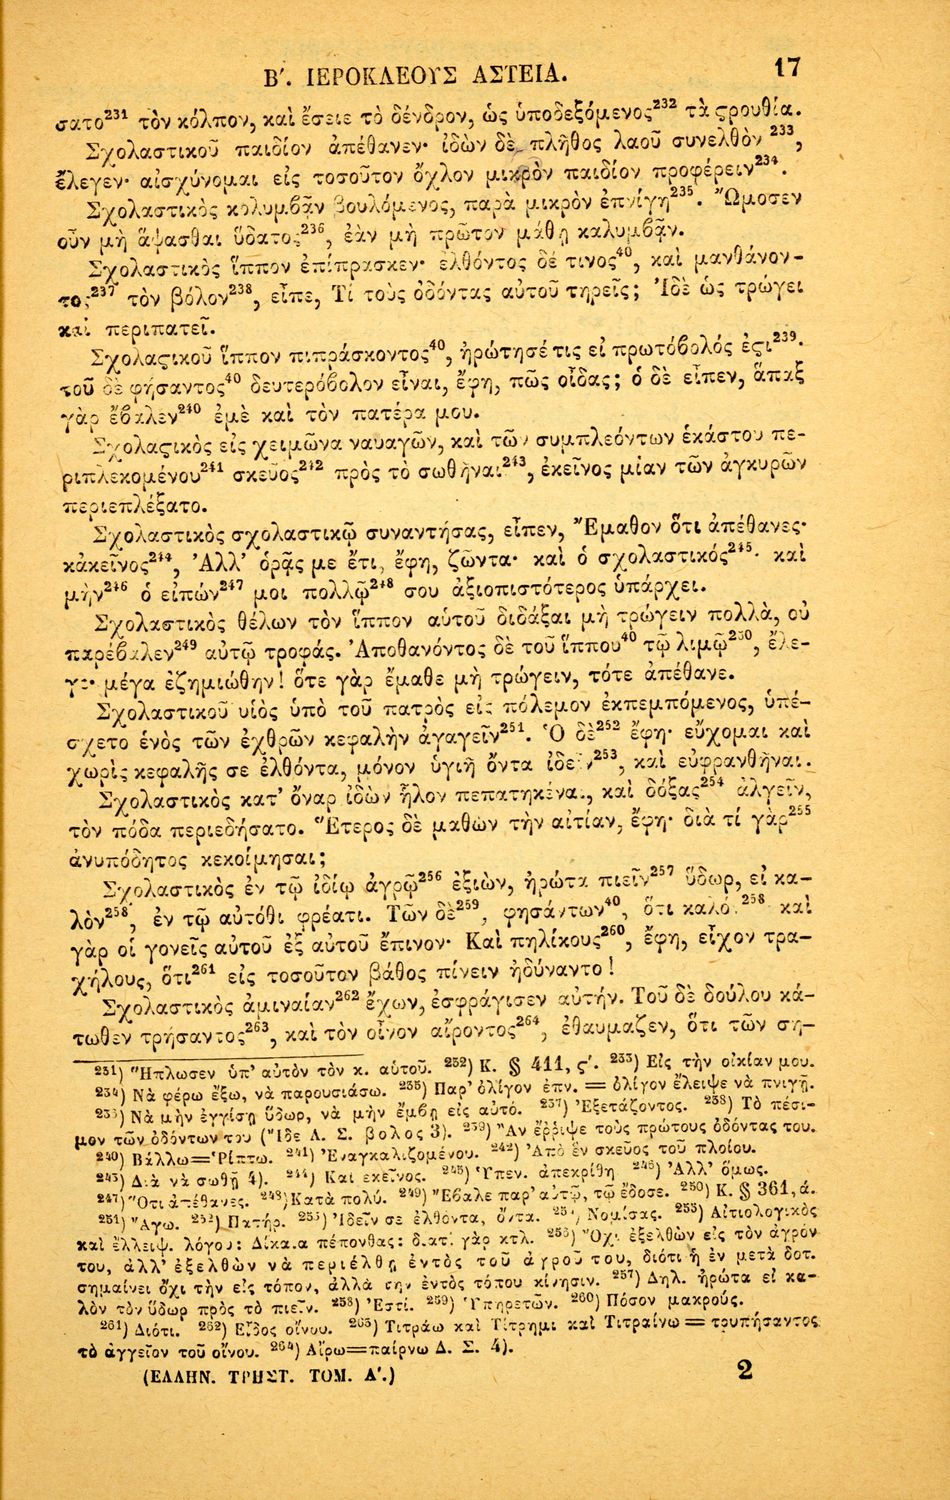 Β΄. ΙΕΡΟΚΛΕΟΥΣ ΑΣΤΕΙΑ. 17
σατο²³¹ τὸν κόλπον, καὶ ἔσειε τὸ δένδρον, ὡς ὑποδεξόμενος²³² τὰ ϛρουθία.
Σχολαστικοῦ παιδίον ἀπέθανεν· ἰδὼν δὲ πλῆθος λαοῦ συνελθὸν²³³,
ἔλεγεν· αἰσχύνομαι εἰς τοσοῦτον ὄχλον μικρὸν παιδίον προφέρειν²³⁴.
Σχολαστικὸς κολυμβᾷν βουλόμενος, παρὰ μικρὸν ἐπνίγη²³⁵. Ὤμοσεν
οὖν μὴ ἅψασθαι ὕδατος²³⁶, ἐὰν μὴ πρῶτον μάθῃ καλυμβᾷν.
Σχολαστικὸς ἵππον ἐπίπρασκεν· ἐλθόντος δέ τινος⁴⁰, καὶ μανθάνον-
τος²³⁷ τὸν βόλον²³⁸, εἶπε, Τί τοὺς ὀδόντας αὐτοῦ τηρεῖς; Ἰδὲ ὡς τρώγει
καὶ περιπατεῖ.
Σχολαϛικοῦ ἵππον πιπράσκοντος⁴⁰, ἠρώτησέ τις εἰ πρωτόβολός ἐϛι²³⁹.
τοῦ δὲ φήσαντος⁴⁰ δευτερόβολον εἶναι, ἔφη, πῶς οἶδας; ὁ δὲ εἶπεν, ἅπαξ
γὰρ ἔβαλεν²⁴⁰ ἐμὲ καὶ τὸν πατέρα μου.
Σχολαϛικὸς εἰς χειμῶνα ναυαγῶν, καὶ τῶν συμπλεόντων ἑκάστου πε-
ριπλεκομένου²⁴¹ σκεῦος²⁴² πρὸς τὸ σωθῆναι²⁴³, ἐκεῖνος μίαν τῶν ἀγκυρῶν
περιεπλέξατο.
Σχολαστικὸς σχολαστικῷ συναντήσας, εἶπεν, Ἔμαθον ὅτι ἀπέθανες·
κἀκεῖνος²⁴⁴, Ἀλλ' ὁρᾷς με ἔτι, ἔφη, ζῶντα· καὶ ὁ σχολαστικός²⁴⁵· καὶ
μὴν²⁴⁶ ὁ εἰπών²⁴⁷ μοι πολλῷ²⁴⁸ σου ἀξιοπιστότερος ὑπάρχει.
Σχολαστικὸς θέλων τὸν ἵππον αὑτοῦ διδάξαι μὴ τρώγειν πολλὰ, οὐ
παρέβαλεν²⁴⁹ αὐτῷ τροφάς. Ἀποθανόντος δὲ τοῦ ἵππου⁴⁰ τῷ λιμῷ²⁵⁰, ἔλε-
γε· μέγα ἐζημιώθην! ὅτε γὰρ ἔμαθε μὴ τρώγειν, τότε ἀπέθανε.
Σχολαστικοῦ υἱὸς ὑπὸ τοῦ πατρὸς εἰς πόλεμον ἐκπεμπόμενος, ὑπέ-
σχετο ἑνὸς τῶν ἐχθρῶν κεφαλὴν ἀγαγεῖν²⁵¹. Ὁ δὲ²⁵² ἔφη· εὔχομαι καὶ
χωρὶς κεφαλῆς σε ἐλθόντα, μόνον ὑγιῆ ὄντα ἰδεῖν²⁵³, καὶ εὐφρανθῆναι.
Σχολαστικὸς κατ' ὄναρ ἰδὼν ἧλον πεπατηκέναι, καὶ δόξας²⁵⁴ ἀλγεῖν,
τὸν πόδα περιεδήσατο. Ἕτερος δὲ μαθὼν τὴν αἰτίαν, ἔφη· διὰ τί γὰρ²⁵⁵
ἀνυπόδητος κεκοίμησαι;
Σχολαστικὸς ἐν τῷ ἰδίῳ ἀγρῷ²⁵⁶ ἐξιὼν, ἠρώτα πιεῖν²⁵⁷ ὕδωρ, εἰ κα-
λὸν²⁵⁸, ἐν τῷ αὐτόθι φρέατι. Τῶν δὲ²⁵⁹, φησάντων⁴⁰, ὅτι καλό.²⁵⁸ καὶ
γὰρ οἱ γονεῖς αὐτοῦ ἐξ αὐτοῦ ἔπινον· Καὶ πηλίκους²⁶⁰, ἔφη, εἶχον τρα-
χήλους, ὅτι²⁶¹ εἰς τοσοῦτον βάθος πίνειν ἠδύναντο!
Σχολαστικὸς ἀμιναίαν²⁶² ἔχων, ἐσφράγισεν αὐτήν. Τοῦ δὲ δούλου κά-
τωθεν τρήσαντος²⁶³, καὶ τὸν οἶνον αἴροντος²⁶⁴, ἐθαυμαζεν, ὅτι τῶν ση-
²³¹) Ἥπλωσεν ὑπ' αὐτὸν τὸν κ. αὑτοῦ. ²³²) Κ. § 411, ϛ΄. ²³³) Εἰς τὴν οἰκίαν μου.
²³⁴) Νὰ φέρω ἔξω, νὰ παρουσιάσω. ²³⁵) Παρ' ὀλίγον ἐπν. = ὀλίγον ἔλειψε νὰ πνιγῇ.
²³⁶) Νὰ μὴν ἐγγίσῃ ὕδωρ, νὰ μὴν ἔμβῃ εἰς αὐτό. ²³⁷) Ἐξετάζοντος. ²³⁸) Τὸ πέσι-
μον τῶν ὀδόντων του (Ἴδε Λ. Σ. βολος 3). ²³⁹) Ἂν ἔῤῥιψε τοὺς πρώτους ὀδόντας του.
²⁴⁰) Βάλλω=Ῥίπτω. ²⁴¹) Ἐναγκαλιζομένου. ²⁴²) Ἀπὸ ἓν σκεῦος τοῦ πλοίου.
²⁴³) Διὰ νὰ σωθῇ 4). ²⁴⁴) Καὶ ἐκεῖνος. ²⁴⁵) Ὑπεν. ἀπεκρίθη ²⁴⁶) Ἀλλ' ὅμως.
²⁴⁷) Ὅτι ἀπέθανες. ²⁴⁸) Κατὰ πολύ. ²⁴⁹) Ἔβαλε παρ' αὐτῷ, τῷ ἔδοσε. ²⁵⁰) Κ. § 361, ά.
²⁵¹) Ἄγω. ²⁵²) Πατήρ. ²⁵³) Ἰδεῖν σε ἐλθόντα, ὄντα. ²⁵⁴) Νομίσας. ²⁵⁵) Αἰτιολογικὸς
καὶ ἔλλειψ. λόγου: Δίκαια πέπονθας: διατί γὰρ κτλ. ²⁵⁶) Ὄχι ἐξελθὼν εἰς τὸν ἀγρόν
του, ἀλλ' ἐξελθὼν νὰ περιέλθῃ ἐντὸς τοῦ ἀγροῦ του, διότι ἡ ἐν μετὰ δοτ.
σημαίνει ὄχι τὴν εἰς τόπον, ἀλλὰ τὴν ἐντὸς τόπου κίνησιν. ²⁵⁷) Δηλ. ἠρώτα εἰ κα-
λὸν τὸν ὕδωρ πρὸς τὸ πιεῖν. ²⁵⁸) Ἐστί. ²⁵⁹) Ὑπηρετῶν. ²⁶⁰) Πόσον μακρούς.
²⁶¹) Διότι. ²⁶²) Εἶδος οἴνου. ²⁶³) Τιτράω καὶ Τίτρημι καὶ Τιτραίνω = τρυπήσαντος
τὸ ἀγγεῖον τοῦ οἴνου. ²⁶⁴) Αἴρω=παίρνω Δ. Σ. 4).
(ΕΛΛΗΝ. ΤΡΗΣΤ. ΤΟΜ. Α΄.) 2